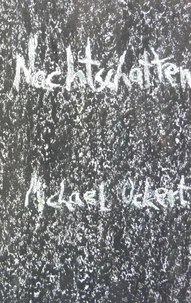 Nachtschatten
Michael Uckert